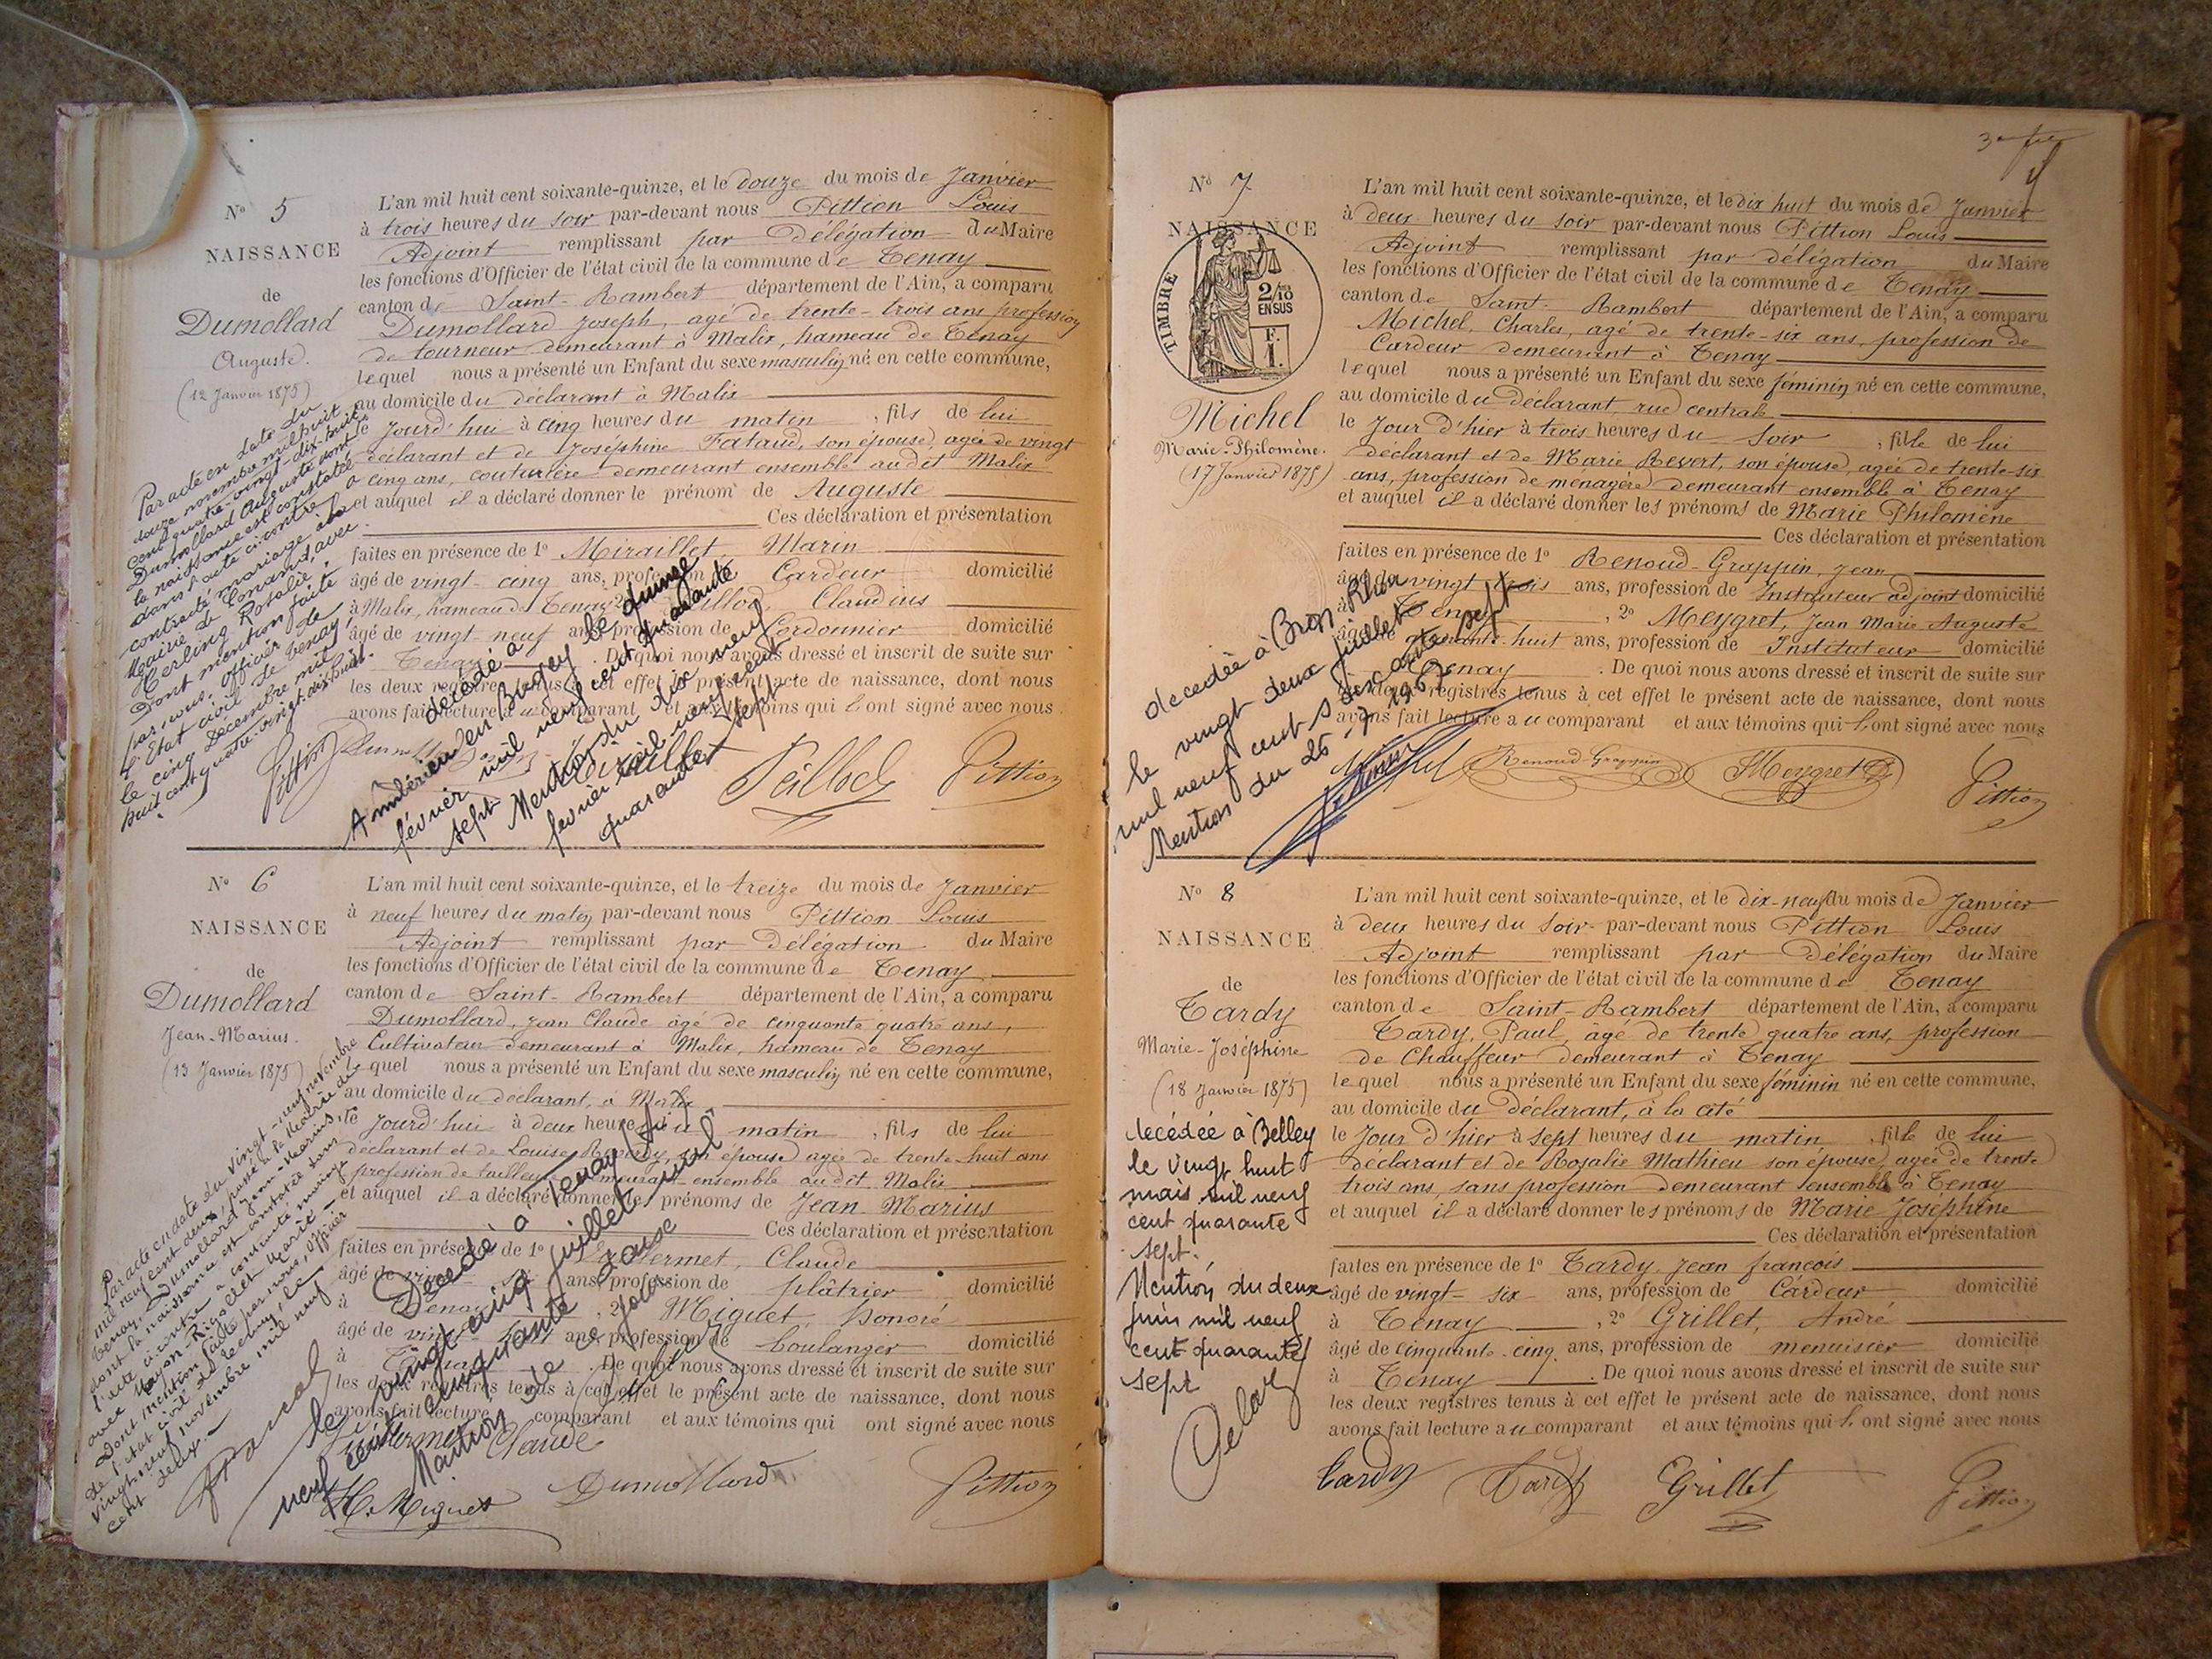 N° 5
NAISSANCE
de
Dumollard
Auguste.
(12 Janvier 1875)
L'an mil huit cent soixante-quinze, et le douze du mois de Janvier
à trois heures du soir par-devant nous Pittion Louis
Adjoint remplissant par Délégation du Maire
les fonctions d'Officier de l'état civil de la commune de Tenay
canton de Saint-Rambert département de l'Ain, a comparu
Dumollard Joseph, agé de trente-trois ans profession
de tourneur demeurant à Malix, hameau de Tenay
lequel nous a présenté un Enfant du sexe masculin né en cette commune,
au domicile du déclarant à Malix
le Jourd'hui à cinq heures du matin, fils de lui
déclarant et de Joséphine Fataud, son épouse, agée de vingt
cinq ans, couturière demeurant ensemble audit Malix
et auquel il a déclaré donner le prénom de Auguste
Ces déclaration et présentation
faites en présence de 1° Miraillet, Marin
âgé de vingt-cinq ans, profession Cardeur domicilié
à Malix, hameau de Tenay 2° Claudius
âgé de vingt-neuf ans, profession de Cordonnier domicilié
Tenay. De quoi nous avons dressé et inscrit de suite sur
les deux registres tenus à cet effet le présent acte de naissance, dont nous
avons fait lecture au comparant et aux témoins qui l'ont signé avec nous.
Par acte en date du
douze novembre mil huit
cent quatre-vingt-dix-huit
Dumollard Auguste dont
la naissance est constatée
dans l'acte ci-contre, a
contracté mariage à la
Mairie de Conand, avec
Herling Rosalie.
Dont mention faite
par nous, officier de
l'Etat civil de Tenay,
le cinq Décembre mil
huit cent quatre-vingt-dix-huit.
Pittion
décédé à
Ambérieu en Bugey le quinze
février mil neuf cent quarante
sept Mention du dix neuf
février mil neuf cent
quarante sept
Miraillet Peilloch Pittion
N° 6
NAISSANCE
de
Dumollard
Jean-Marius.
(13 Janvier 1875)
L'an mil huit cent soixante-quinze, et le treize du mois de Janvier
à neuf heures du matin par-devant nous Pittion Louis
Adjoint remplissant par Délégation du Maire
les fonctions d'Officier de l'état civil de la commune de Tenay
canton de Saint-Rambert département de l'Ain, a comparu
Dumollard, Jean Claude âgé de cinquante quatre ans,
Cultivateur demeurant à Malix, hameau de Tenay
lequel nous a présenté un Enfant du sexe masculin né en cette commune,
au domicile du déclarant, à Malix
le Jourd'hui à deux heures du matin, fils de lui
déclarant et de Louise son épouse agée de trente-huit ans
profession de demeurant ensemble audit Malix
et auquel il a déclaré donner les prénoms de Jean Marius
Ces déclaration et présentation
faites en présence de 1° Claude
âgé de ans, profession de plâtrier domicilié
à Tenay, 2° Miguet, Honoré
âgé de ans, profession de boulanger domicilié
à Tenay. De quoi nous avons dressé et inscrit de suite sur
les deux registres tenus à cet effet le présent acte de naissance, dont nous
avons fait lecture comparant et aux témoins qui ont signé avec nous
Par acte en date du vingt-neuf novembre
mil neuf cent deux, passé à la Mairie de
Tenay, Dumollard Jean-Marius,
dont la naissance est constatée dans
l'acte ci-contre, a contracté mariage
avec Rigollet Marie
Dont mention faite par nous, officier
de l'état civil de Tenay, le
vingt-neuf novembre mil neuf
cent deux.
Décédé à Tenay (Ain)
le vingt cinq juillet mil
neuf cent cinquante
Mention de ce jour
Claude
H. Miguet Dumollard Pittion
3e
N° 7
NAISSANCE
TIMBRE
2/10
EN SUS
F.
1.
Michel
Marie-Philomène.
(17 Janvier 1875)
L'an mil huit cent soixante-quinze, et le dix huit du mois de Janvier
à deux heures du soir par-devant nous Pittion Louis
Adjoint remplissant par délégation du Maire
les fonctions d'Officier de l'état civil de la commune de Tenay
canton de Saint-Rambert département de l'Ain, a comparu
Michel, Charles, agé de trente-six ans, profession de
Cardeur demeurant à Tenay
lequel nous a présenté un Enfant du sexe féminin né en cette commune,
au domicile du déclarant, rue centrale
le Jour d'hier à trois heures du soir, fille de lui
déclarant et de Marie Revert, son épouse, agée de trente-six
ans, profession de ménagère demeurant ensemble à Tenay
et auquel il a déclaré donner les prénoms de Marie Philomène
Ces déclaration et présentation
faites en présence de 1° Renoud-Grappin, Jean
âgé de vingt trois ans, profession de Instituteur adjoint domicilié
à Tenay, 2° Meygret, Jean Marie Auguste
âgé de quarante-huit ans, profession de Instituteur domicilié
Tenay. De quoi nous avons dressé et inscrit de suite sur
les deux registres tenus à cet effet le présent acte de naissance, dont nous
avons fait lecture au comparant et aux témoins qui l'ont signé avec nous
décédée à Bron Rhône
le vingt deux juillet
mil neuf cent soixante sept
Mention du 26-7-1967
Michel Renoud-Grappin Meygret Pittion
N° 8
NAISSANCE
de
Tardy
Marie-Joséphine
(18 Janvier 1875)
L'an mil huit cent soixante-quinze, et le dix-neuf du mois de Janvier
à deux heures du soir par-devant nous Pittion Louis
Adjoint remplissant par Délégation du Maire
les fonctions d'Officier de l'état civil de la commune de Tenay
canton de Saint-Rambert département de l'Ain, a comparu
Tardy, Paul, âgé de trente quatre ans, profession
de Chauffeur demeurant à Tenay
lequel nous a présenté un Enfant du sexe féminin né en cette commune,
au domicile du déclarant, à la cité
le Jour d'hier à sept heures du matin, fille de lui
déclarant et de Rosalie Mathieu son épouse, agée de trente
trois ans, sans profession demeurant ensemble à Tenay
et auquel il a déclaré donner les prénoms de Marie Joséphine
Ces déclaration et présentation
faites en présence de 1° Tardy, Jean françois
âgé de vingt-six ans, profession de Cardeur domicilié
à Tenay, 2° Grillet, André
âgé de cinquante-cinq ans, profession de menuisier domicilié
à Tenay. De quoi nous avons dressé et inscrit de suite sur
les deux registres tenus à cet effet le présent acte de naissance, dont nous
avons fait lecture au comparant et aux témoins qui l'ont signé avec nous
décédée à Belley
le vingt huit
mais mil neuf
cent quarante
sept.
Mention du deux
juin mil neuf
cent quarante
sept
Tardy Tardy Grillet Pittion